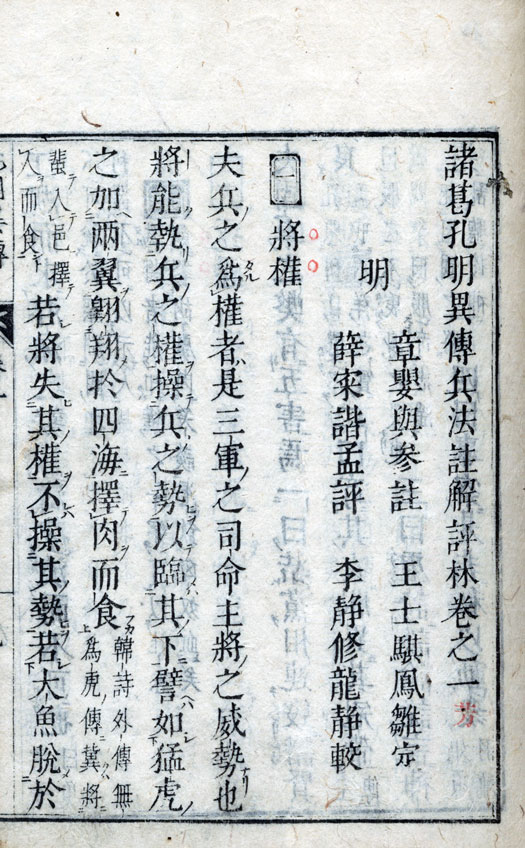 諸葛孔明異傳兵法註解評林卷之一
章嬰與參註　王士騏鳳雛定
明
薛寀諧孟評　李静修龍静較
一　將權
夫兵之爲權者是三軍之司命主將之威勢也
將能執兵之權操兵之勢以臨其下譬如猛虎
之加兩翼翺翔於四海擇肉而食韓詩外傳無爲虎傳冀將
蜚入邑擇人而食若將失其權不操其勢若大魚脫於